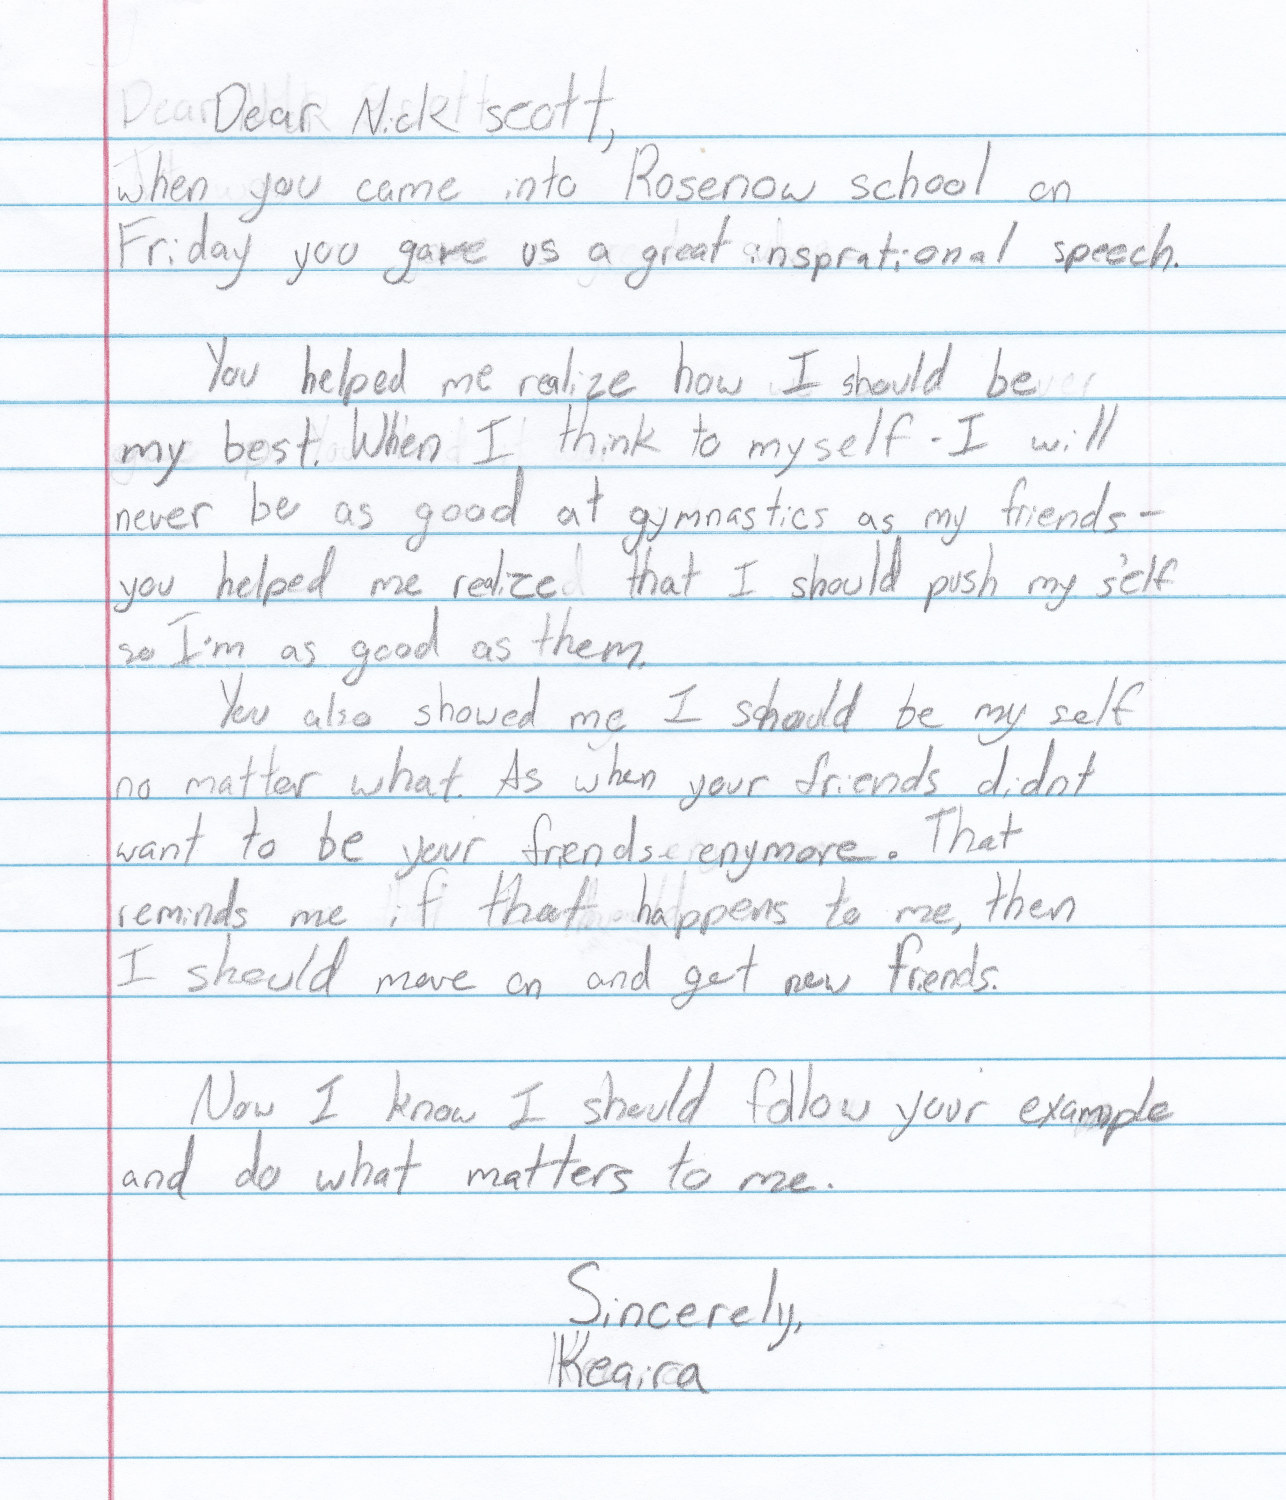 Dear Nick scott,
when you came into Rosenow school on
Friday you gave us a great insprational speech.
You helped me realize how I should be
my best. When I think to myself - I will
never be as good at gymnastics as my friends -
you helped me realize that I should push my self
so I'm as good as them.
You also showed me I should be my self
no matter what. As when your friends didnt
want to be your friends enymore. That
reminds me if that happens to me, then
I should move on and get new friends.
Now I know I should follow your example
and do what matters to me.
Sincerely,
Keaira